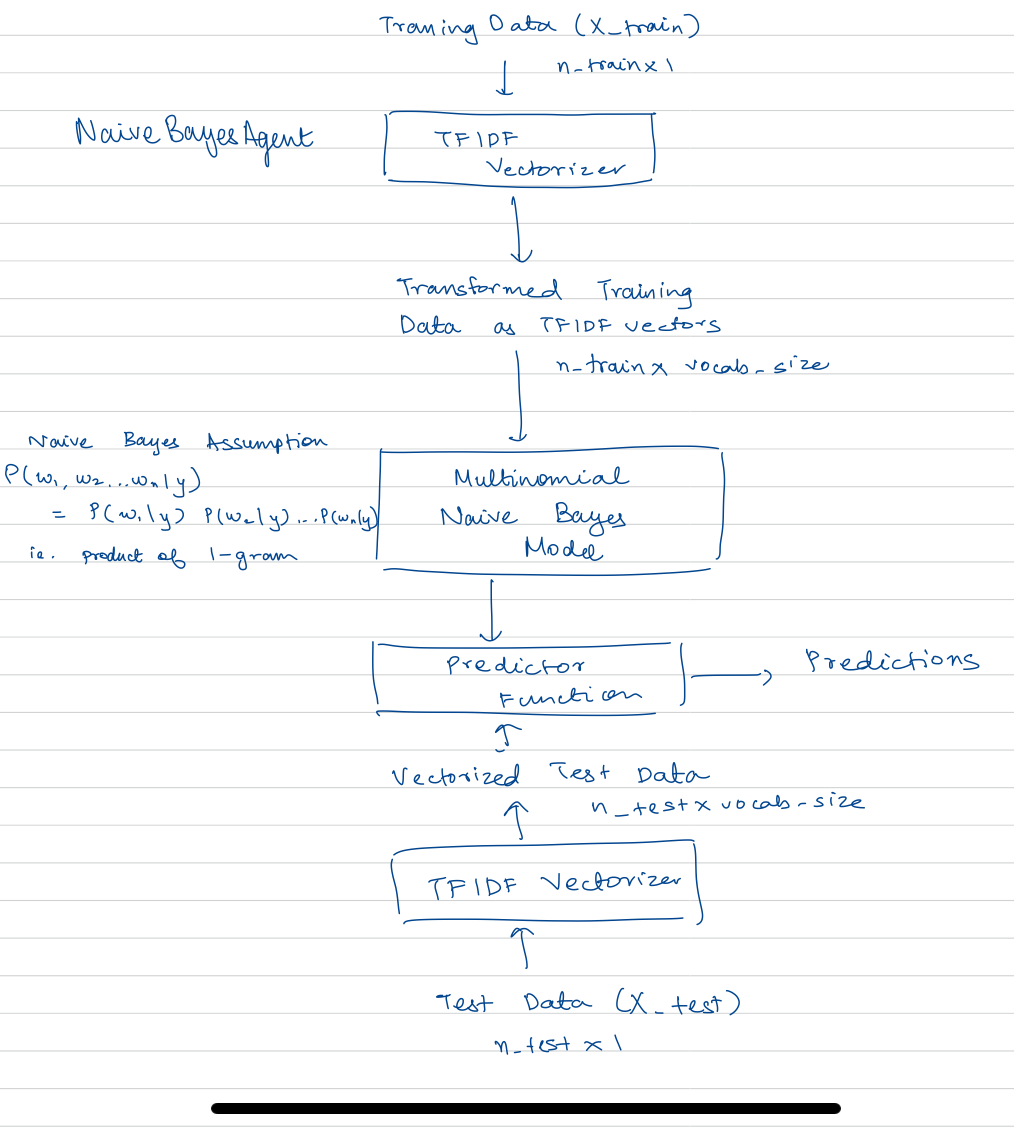 Traning Data (X_train)
n-train x 1
NaiveBayesAgent
TFIDF
Vectorizer
Transformed Training
Data as TFIDF vectors
n-train x vocab-size
Naive Bayes Assumption
P(w₁, w₂...wₙ|y)
= P(w₁|y) P(w₂|y)...P(wₙ|y)
ie. product of 1-gram
Multinomial
Naive Bayes
Model
Predictor
Function
Predictions
Vectorized Test Data
n_test x vocab-size
TFIDF Vectorizer
Test Data (X_test)
n-test x 1